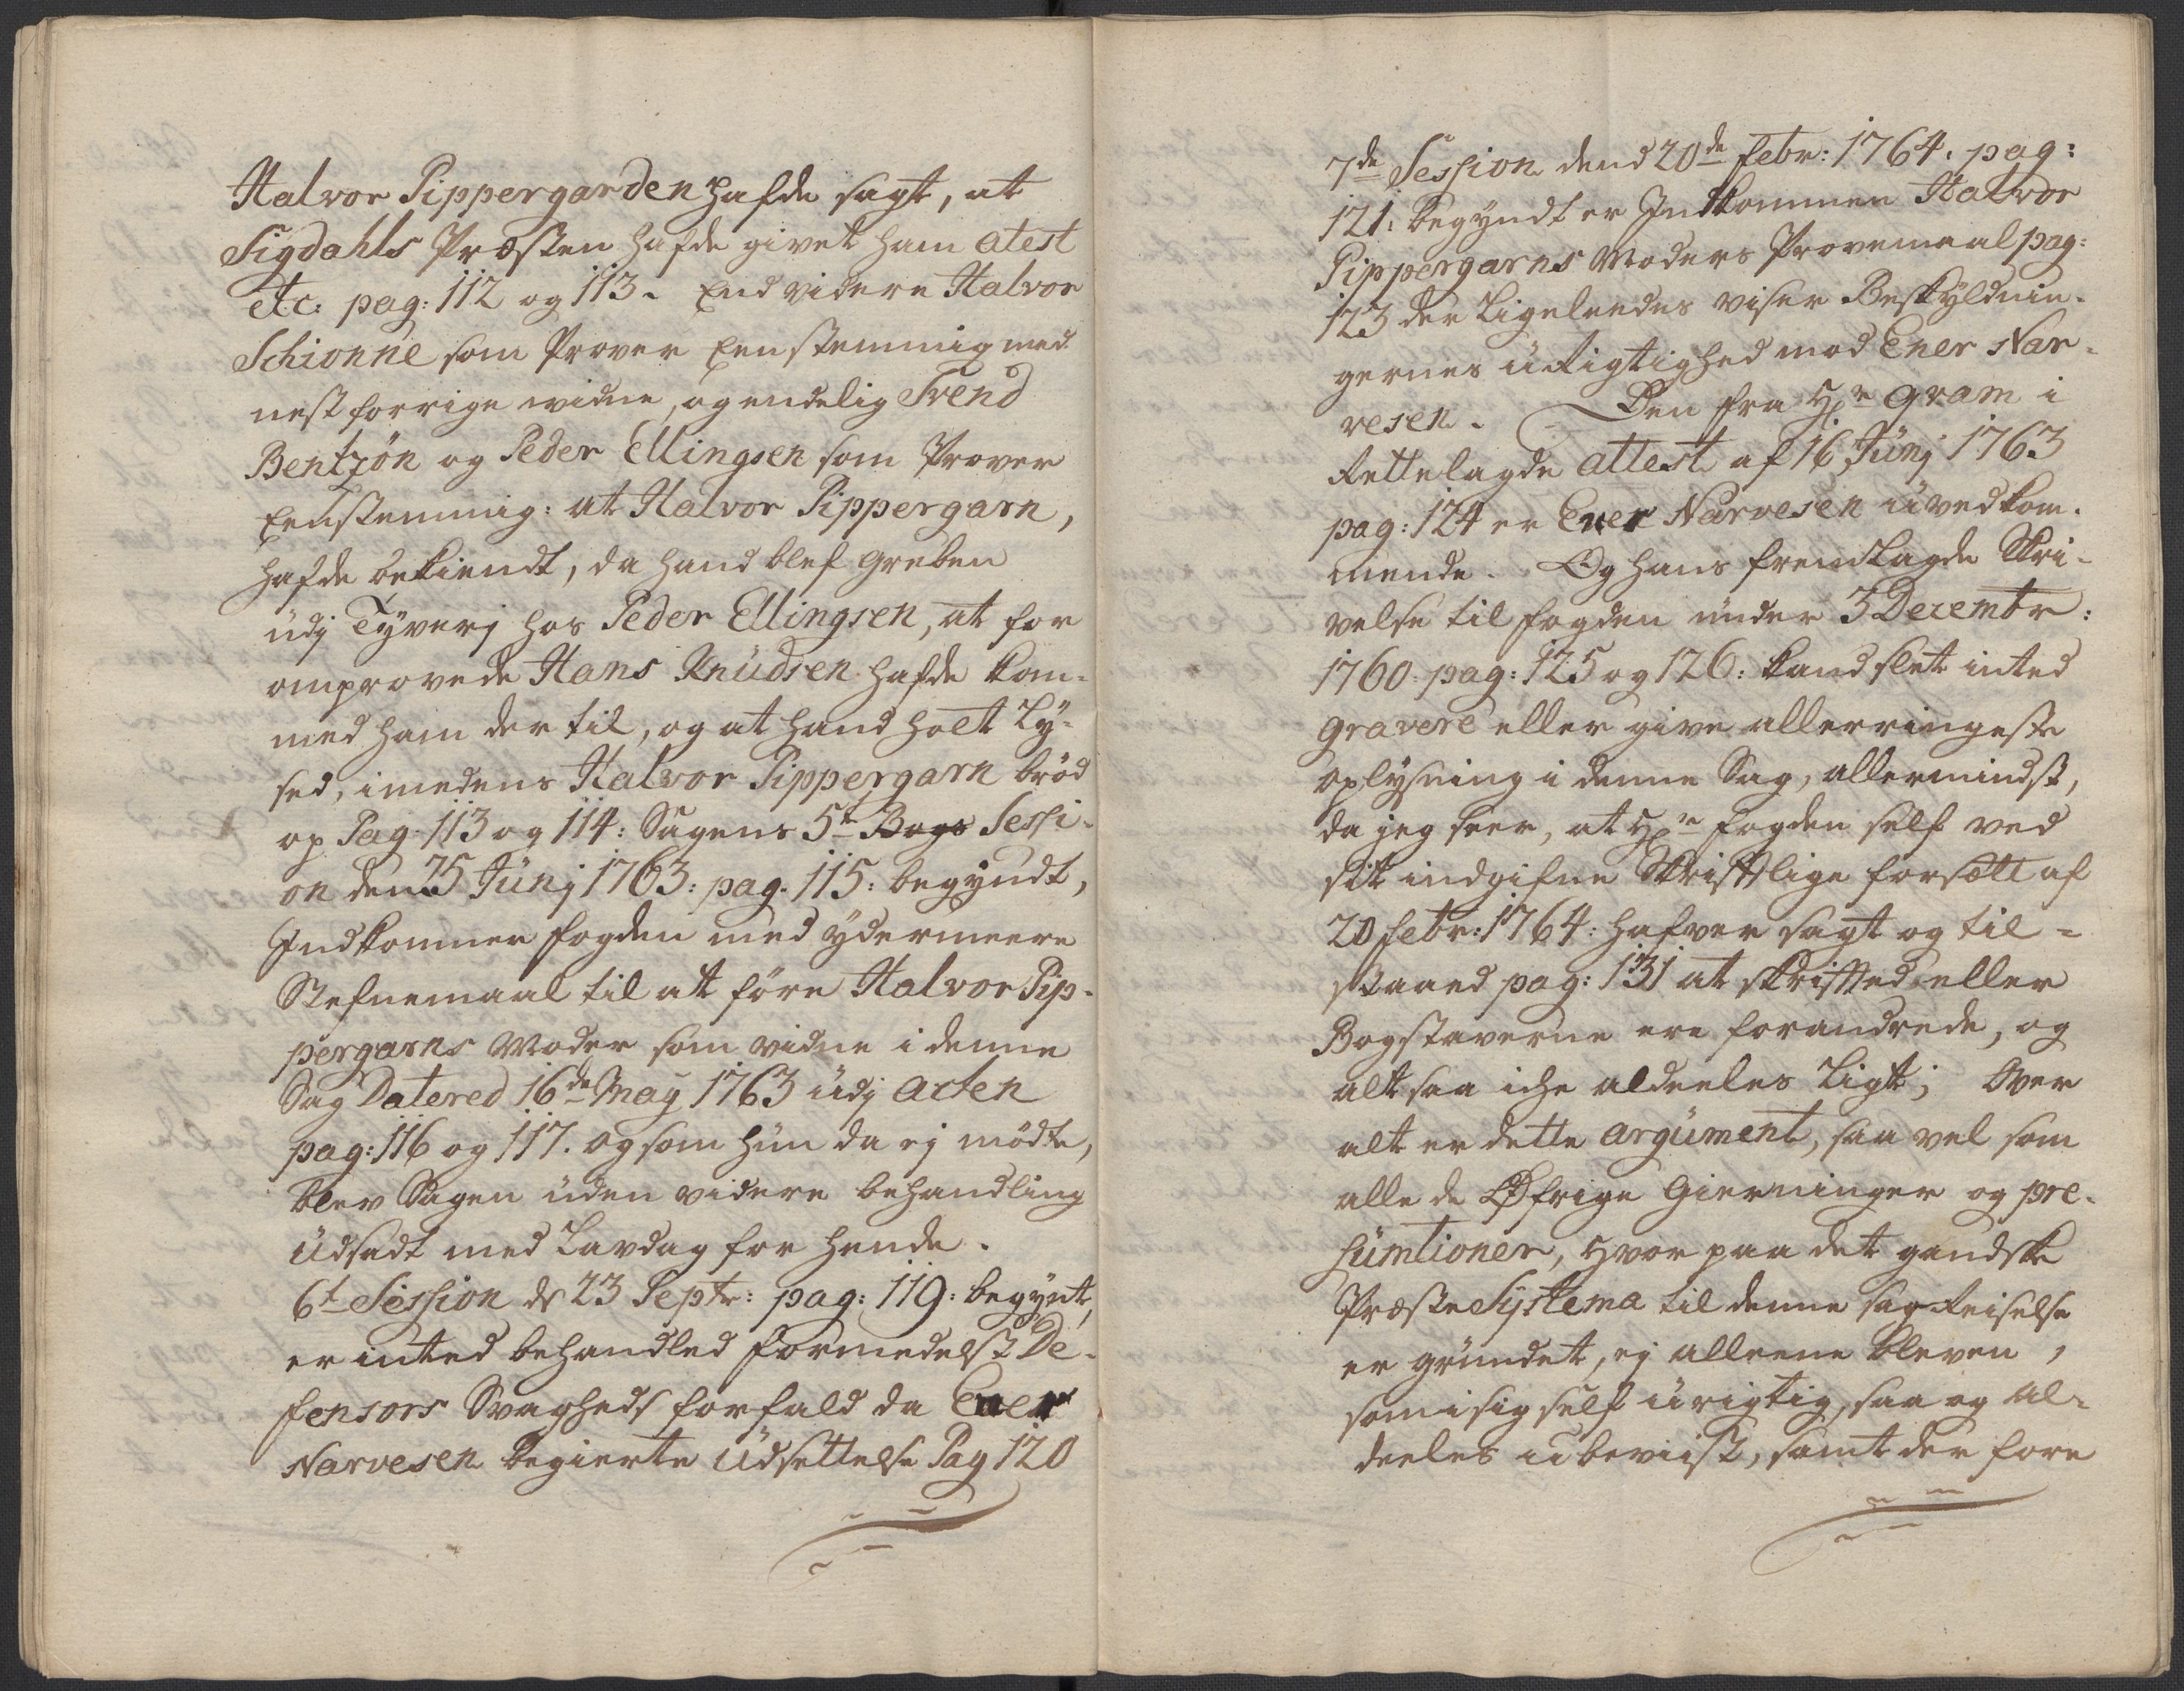 Halvor Pippergarden hafde sagt, at
Sigdahls Præsten hafde givet ham atest
etc: pag: 112 og 113. End videre Halvor
Schionne som Prover Eenstemmig med
nest forrige vidne, og endelig Svend
Bentzøn og Peder Ellingsen som Prover
Eenstemmig: at Halvor Pippergarn,
hafde bekiendt, da hand blef greben
udj Tyverj hos Peder Ellingsen, at for
omprovede Hans Knudsen hafde kom-
med ham der til, og at hand holt Ly-
sed, imedens Halvor Pippergarn brød
op Pag: 113 og 114: Sagens 5t Bogs Sessi-
on den 25 Junj 1763: pag. 115: begyndt,
Indkommer fogden med ydermeere
Stefnemaal til at føre Halvor Pip-
pergarns Moder som vidne i denne
Sag Datered 16de May 1763 udj Acten
pag: 116 og 117. og som hun da ej mødte,
blev Sagen uden videre behandling
Udsadt med Lavdag for hende.
6t Session ds 23 Septr: pag: 119: begynt,
er inted behandled formedelst De-
fensors Svagheds forfald da Ener
Narvesen begierte Udsettelse Pag 120
7de Session dend 20de Febr: 1764. pag:
121: begyndt er Indkommen Halvor
Pippergarns Moders Provemaal pag:
123 der Ligeleedes viser Beskyldnin-
gernes urigtighed mod Ener Nar-
vesen. Den fra Hr Gram i
Rettelagde Attest af 16 Junj 1763
pag: 124 er Ener Narvesen uvedkom-
mende. Og hans fremlagde Skri-
velse til fogden under 3 Decembr:
1760. pag: 125 og 126: kand slet inted
gravere eller give allerringeste
oplysning i denne Sag, allermindst,
da jeg seer, at Hr fogden self ved
sit indgifne Skriftlige forsætt af
20 Febr: 1764: hafver sagt og til-
staaed pag: 131 at skrifted eller
Bogstaverne ere forandrede, og
alt saa iche aldeeles Ligt; Over
alt er dette argument, saa vel som
alle de Øfrige Gierninger og pre-
sumtioner, hvor paa det gandske
Præste Systema til denne sag Reiselse
er grundet, ej alleene bleven,
som i sig self urigtig, saa og al-
deeles ubeviist, samt der fore